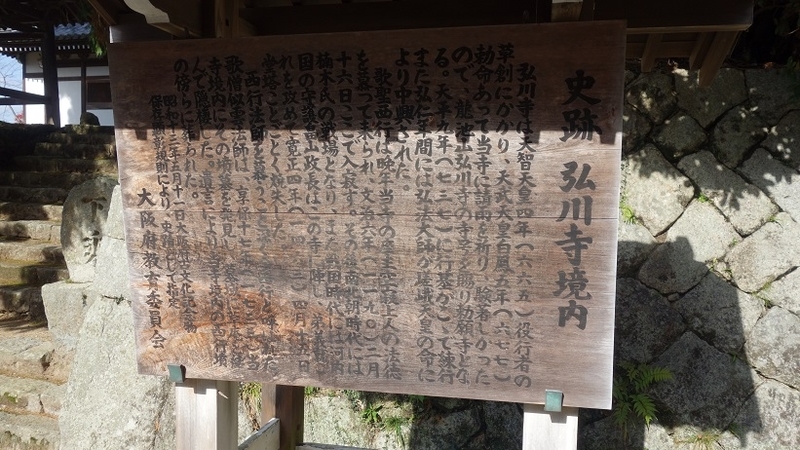 史跡 弘川寺境内
弘川寺は天智天皇四年(六六五)役行者の
草創にかかり、天武天皇白鳳五年(六七七)
勅命あって当寺に請雨を祈り、験著しかった
ので、龍池山弘川寺の寺号を賜り勅願寺とな
る。天平九年(七三七)に行基がここで練行
また弘仁年間には弘法大師が嵯峨天皇の命に
より中興された。
歌聖西行は晩年当寺の座主空寂上人の法徳
を慕って来られ、文治六年(一一九〇)二月
十六日ここで入寂す。その後南北朝時代には
楠木氏の戦場となり、また戦国時代には河内
国の守護畠山政長はこの寺に陣し、
れを攻めて寛正四年(一四六三)四月十五日
ことごとく焼失した。
西行法師を慕う
歌僧似雲法師は、享保十七年(一七三二)当
寺境内にその墳墓を発見し、
人で隠棲した。遺言により当寺境内の西行墳
の傍らに葬られた。
昭和十二年三月十一日大阪府
規則により、史跡として指定
大阪府教育委員会